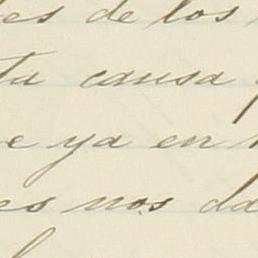 es de los
ta causa
e ya en
es nos da